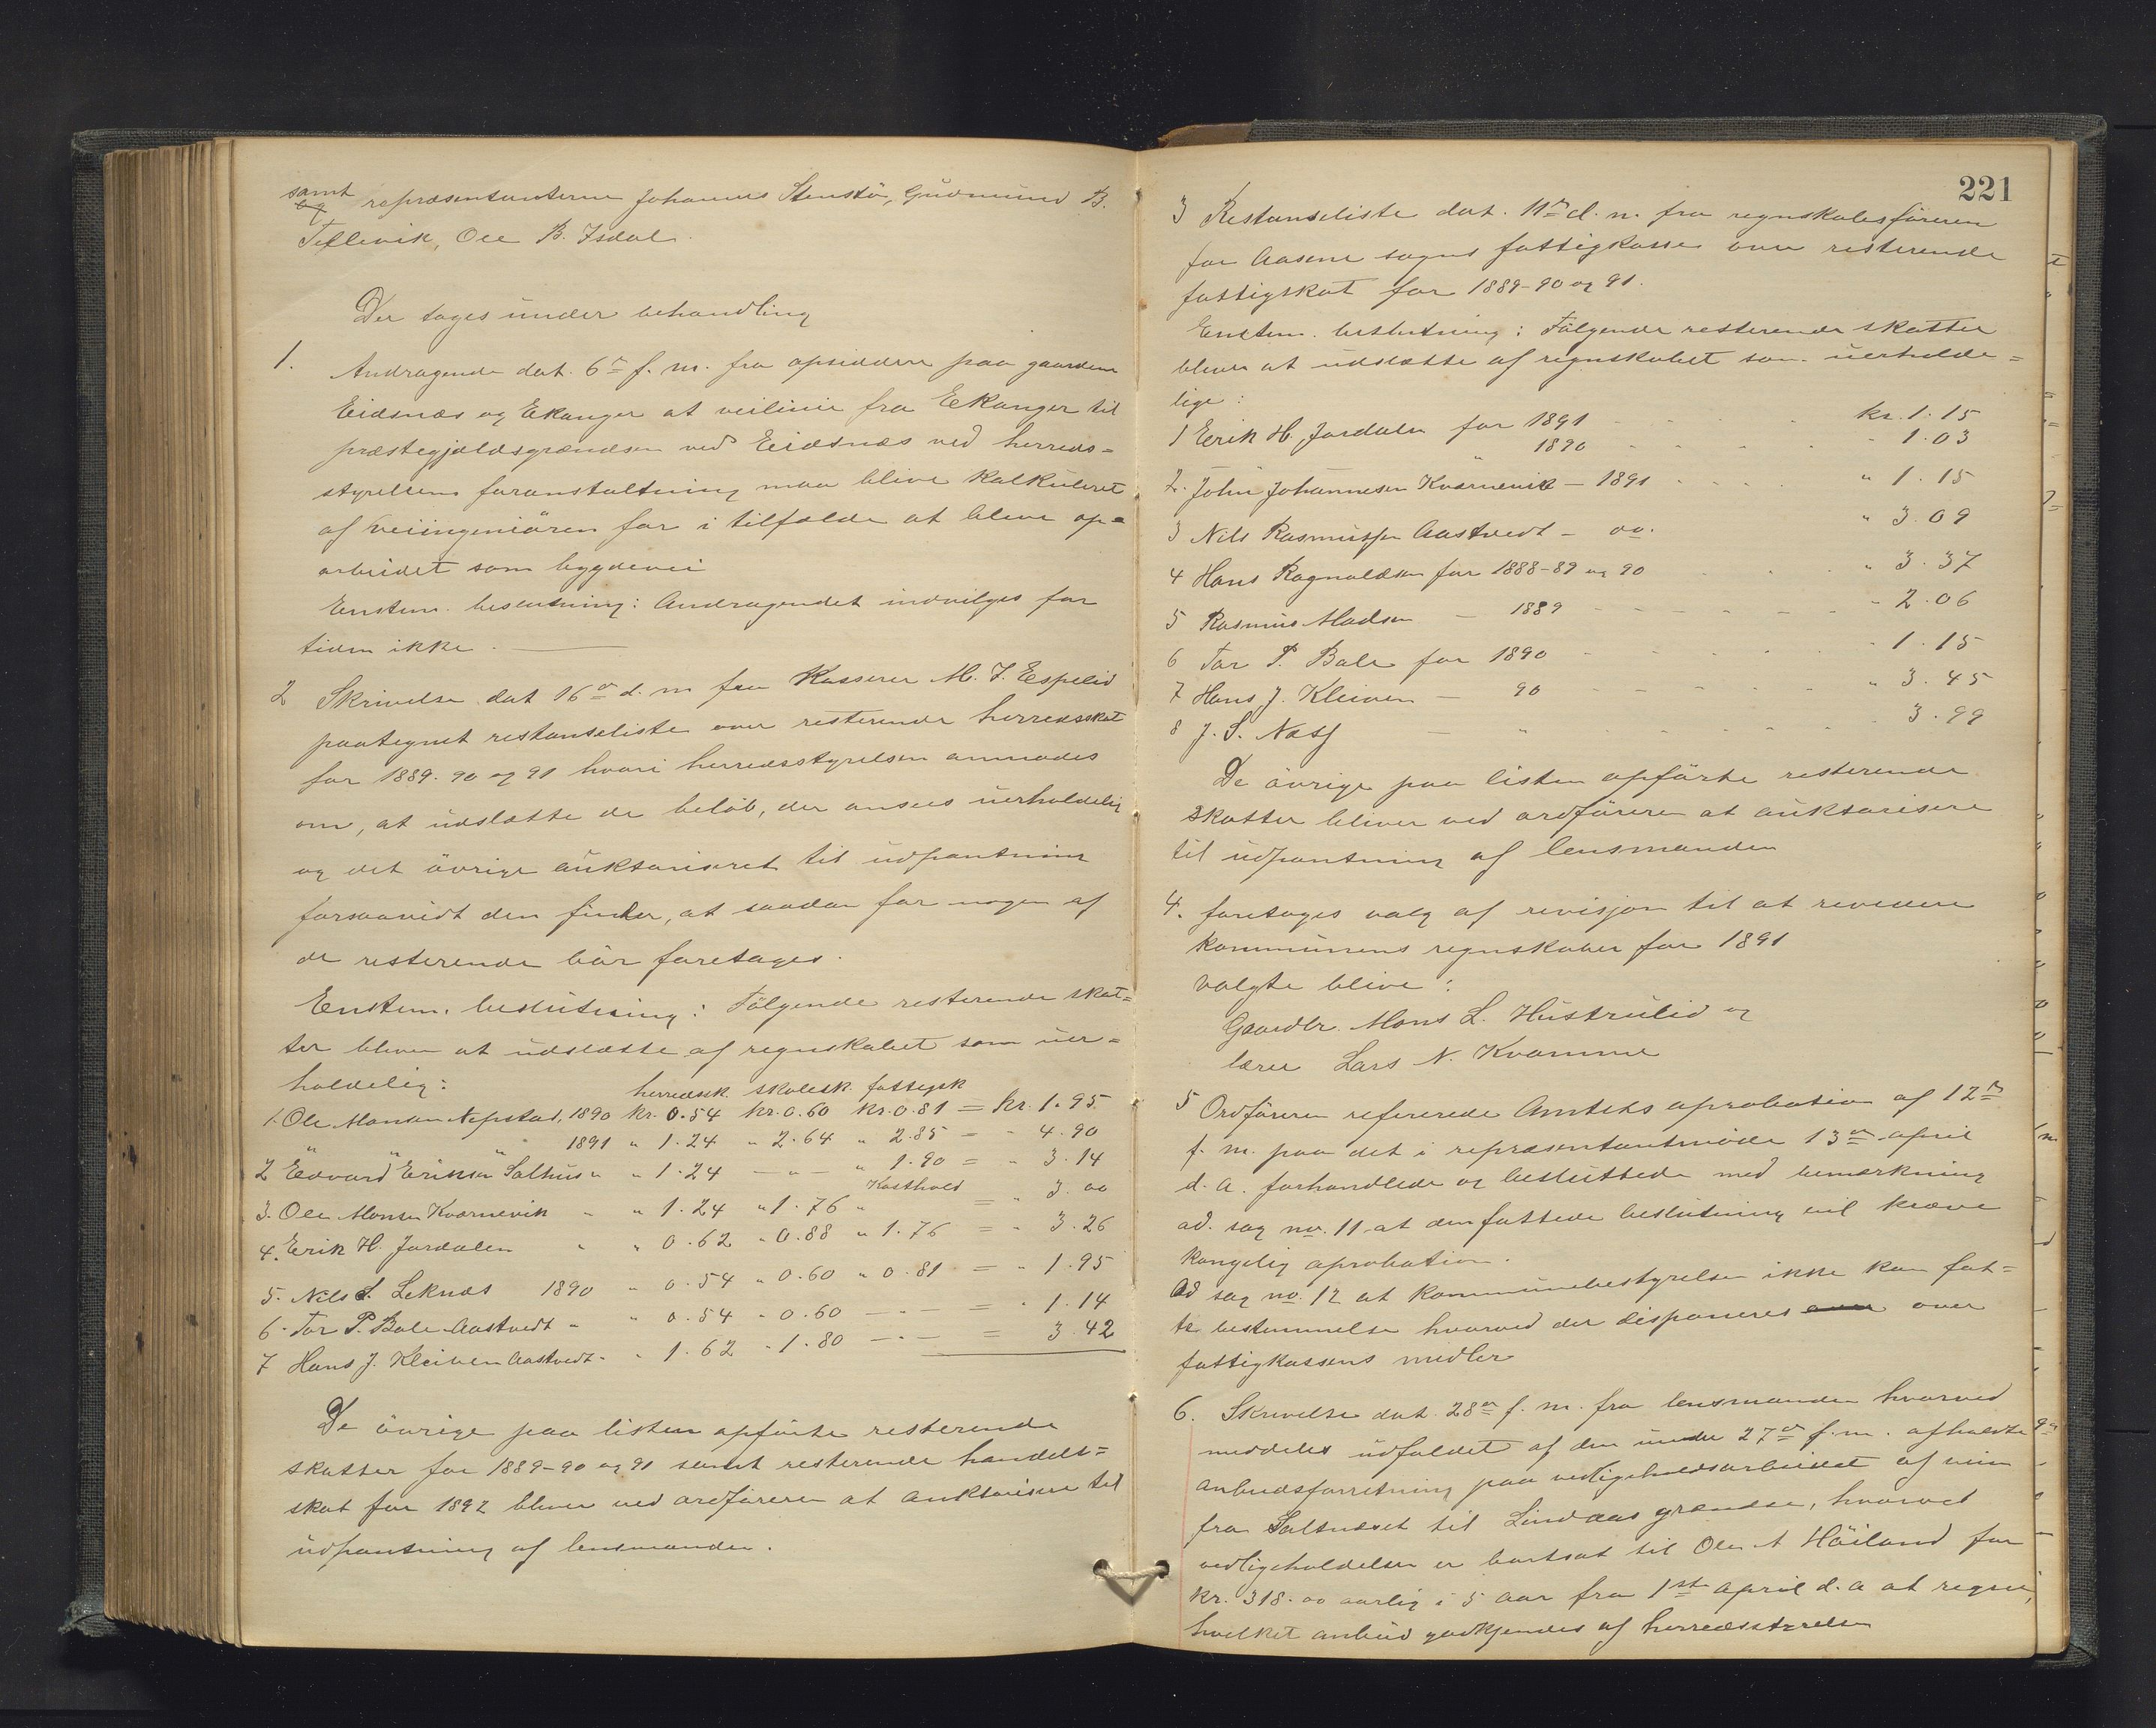 samt
og repræsentanterne Johannes Stenstö, Gudmund B.
Tellevik, Ole B. Isdal.
Der toges under behandling
1. Andragende dat. 6te f. m. fra opsiddere paa gaardene
Eidsnæs og Ekanger at veilinie fra Ekanger til
præstegjældsgrændsen ved Eidsnæs ved herreds=
styrelsens foranstaltning maa blive kalkuleret
af veiingeniören for i tilfælde at blive op=
arbeidet som bygdevei
Enstem. beslutning: Andragendet indvilges for
tiden ikke.
2 Skrivelse dat 16de d. m fra Kasserer M. J. Espelid
paategnet restanseliste over resterende herredsskat
for 1889. 90 og 91 hvori herredsstyrelsen anmodes
om, at udslætte de belöb, der ansees uerholdelig
og det övrige auktoriseret til udpantning
forsaavidt den finder, at saadan for nogen af
de resterende bör foretages.
Enstem. beslutning: Fölgende resterende skat=
ter bliver at udslætte af regnskabet som uer=
holdelig:
herredssk. skolesk. fattigsk
1. Ole Monsen Nepstad, 1890 kr. 0.54 kr. 0.60 kr. 0.81 = kr. 1.95
" " 1891 " 1.24 " 2.64 " 2.85 = " 4.90
2 Edvard Eriksen Salhus " " 1.24 — " — " 1.90 = " 3.14
3. Ole Monsen Kvarnevik " " 1.24 " 1.76 " Kosthold = " 3.00
4. Erik H. Jordalen " " 0.62 " 0.88 " 1.76 = " 3.26
5. Nils S. Leknæs 1890 " 0.54 " 0.60 " 0.81 = " 1.95
6. Tor P. Bale Aastvedt " " 0.54 " 0.60 — " — = " 1.14
7 Hans J. Kleiven Aastvedt " " 1.62 " 1.80 — " — = 3.42
De övrige paa listen opförte resterende
skatter for 1889-90 og 91 samt resterende handels=
skat for 1892 bliver ved ordföreren at auktorisere til
udpantning af lensmanden.
221
3 Restanseliste dat. 11te d. m. fra regnskabsföreren
for Aasene sogns fattigkasse over resterende
fattigskat for 1889-90 og 91.
Enstem. beslutning: Fölgende resterende skatter
bliver at udslætte af regnskabet som uerholde=
lige:
1 Erik H. Jordalen for 1891 kr. 1.15
" 1890 - 1.03
2. John Johannesen Kvarnevik — 1891 " 1.15
3 Nils Rasmussen Aastvedt — do. " 3.09
4 Hans Ragnvaldsen for 1888-89 og 90 " 3.37
5 Rasmus Madsen — 1889 - 2.06
6 Tor P. Bale for 1890 - 1.15
7 Hans J. Kleiven — 90 " 3.45
8 J. S. Næss — " 3.99
De övrige paa listen opförte resterende
skatter bliver ved ordföreren at auktorisere
til udpantning af lensmanden
4. foretoges valg af revisjon til at revidere
kommunens regnskaber for 1891
valgte blive:
Gaardbr. Mons L. Hustrulid og
lærer Lars N. Kvamme
5 Ordföreren refererede Amtets aprobation af 12te
f. m. paa det i repræsentantmöde 13de april
d. a. forhandlede og besluttede med bemærkning
ad. sag no. 11 at den fattede beslutning vil kræve
kongelig aprobation.
Ad sag no. 12 at kommunebestyrelsen ikke kan fat=
te bestemmelse hvorved der disponeres over over
fattigkassens midler
6. Skrivelse dat. 28de f. m. fra lensmanden hvorved
meddeles udfaldet af den under 27de f. m. afholdte
anbudsforretning paa vedligeholdsarbeidet af veien
fra Saltnæset til Lindaas grændse, hvorved
vedligeholdelsen er bortsat til Ole A Höiland for
kr. 318.00 aarlig i 5 aar fra 1ste april d. a at regne,
hvilket anbud godkjendes af herredsstyrelsen